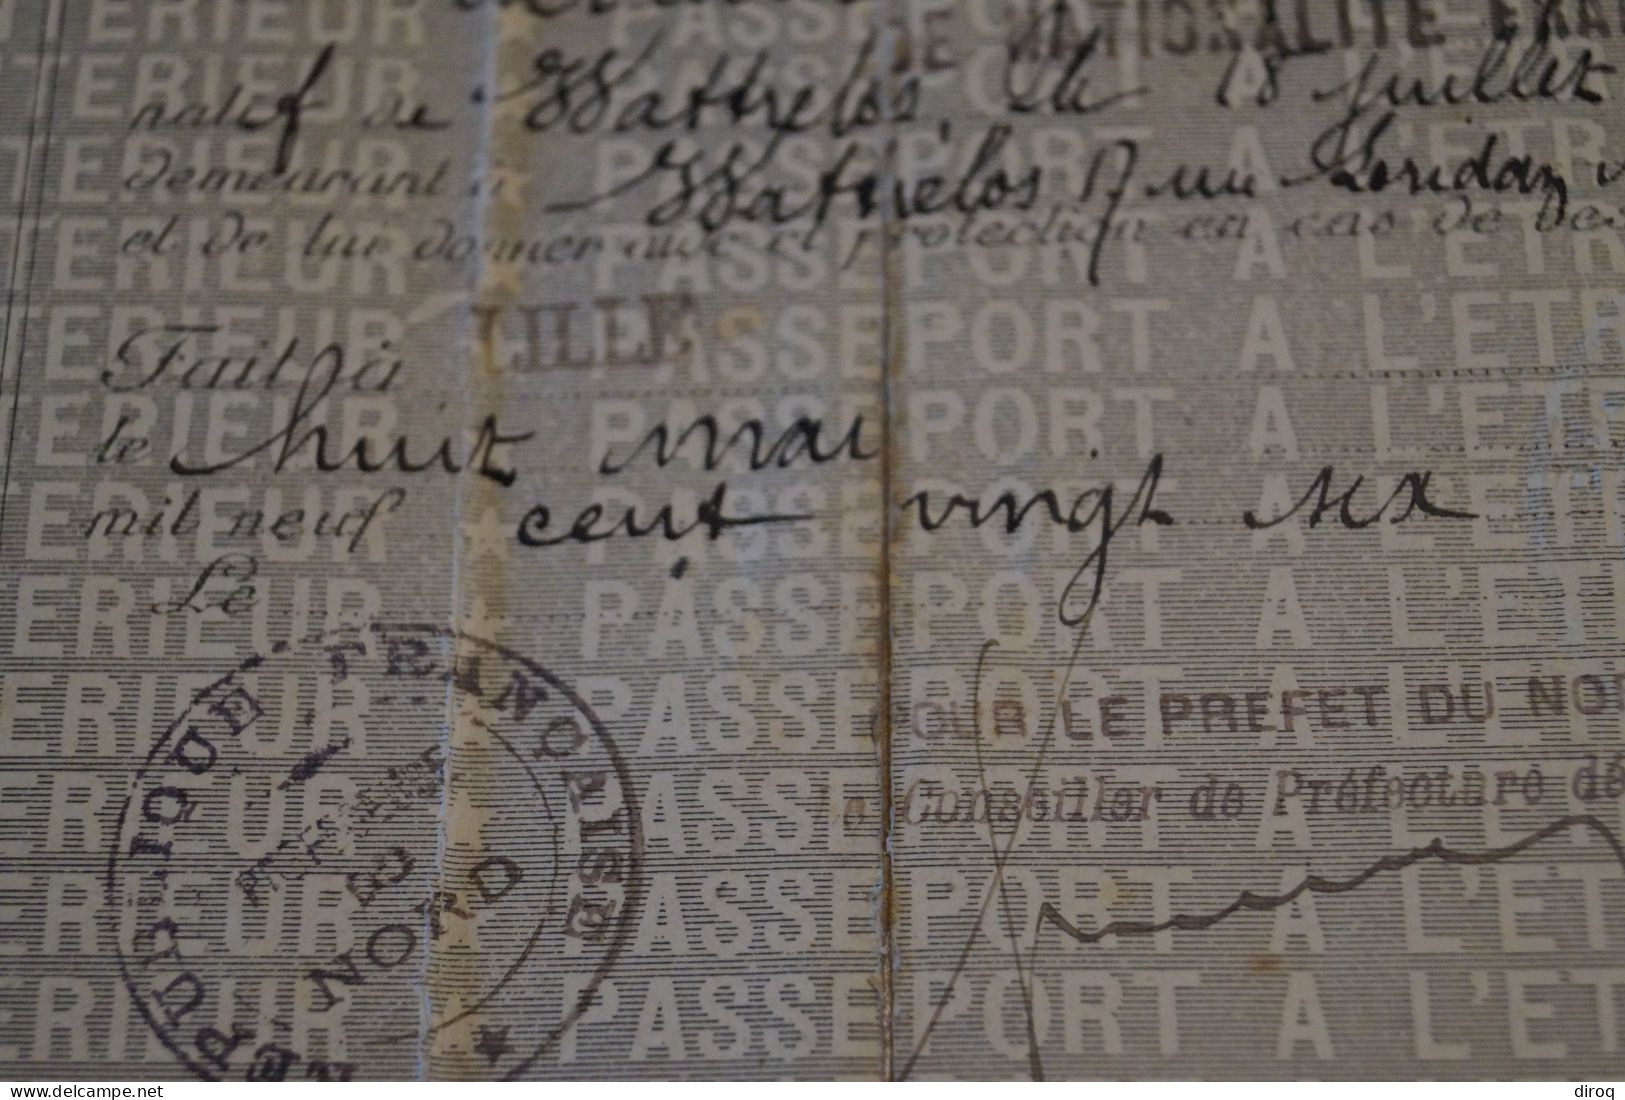 DE NATIONALITÉ FRA
natif de Wattrelos, le 18 juillet
demeurant à Wattrelos Rue Loridan
et de lui donner aide et protection en cas de bes
Fait à LILLE
le huit mai
mil neuf cent vingt six
Le
RÉPUBLIQUE FRANÇAISE
PREFECTURE
DU
NORD
POUR LE PREFET DU NOR
le Conseiller de Préfecture dé
TERIEUR PASSEPORT A L'ETR
TERIEUR PASSEPORT A L'ETR
TERIEUR PASSEPORT A L'ETR
TERIEUR PASSEPORT A L'ETR
TERIEUR PASSEPORT A L'ETR
TERIEUR PASSEPORT A L'ETR
TERIEUR PASSEPORT A L'ETR
TERIEUR PASSEPORT A L'ET
TERIEUR PASSEPORT A L'ET
TERIEUR PASSEPORT A L'ET
TERIEUR PASSEPORT A L'ET
delcampe.net
diroq